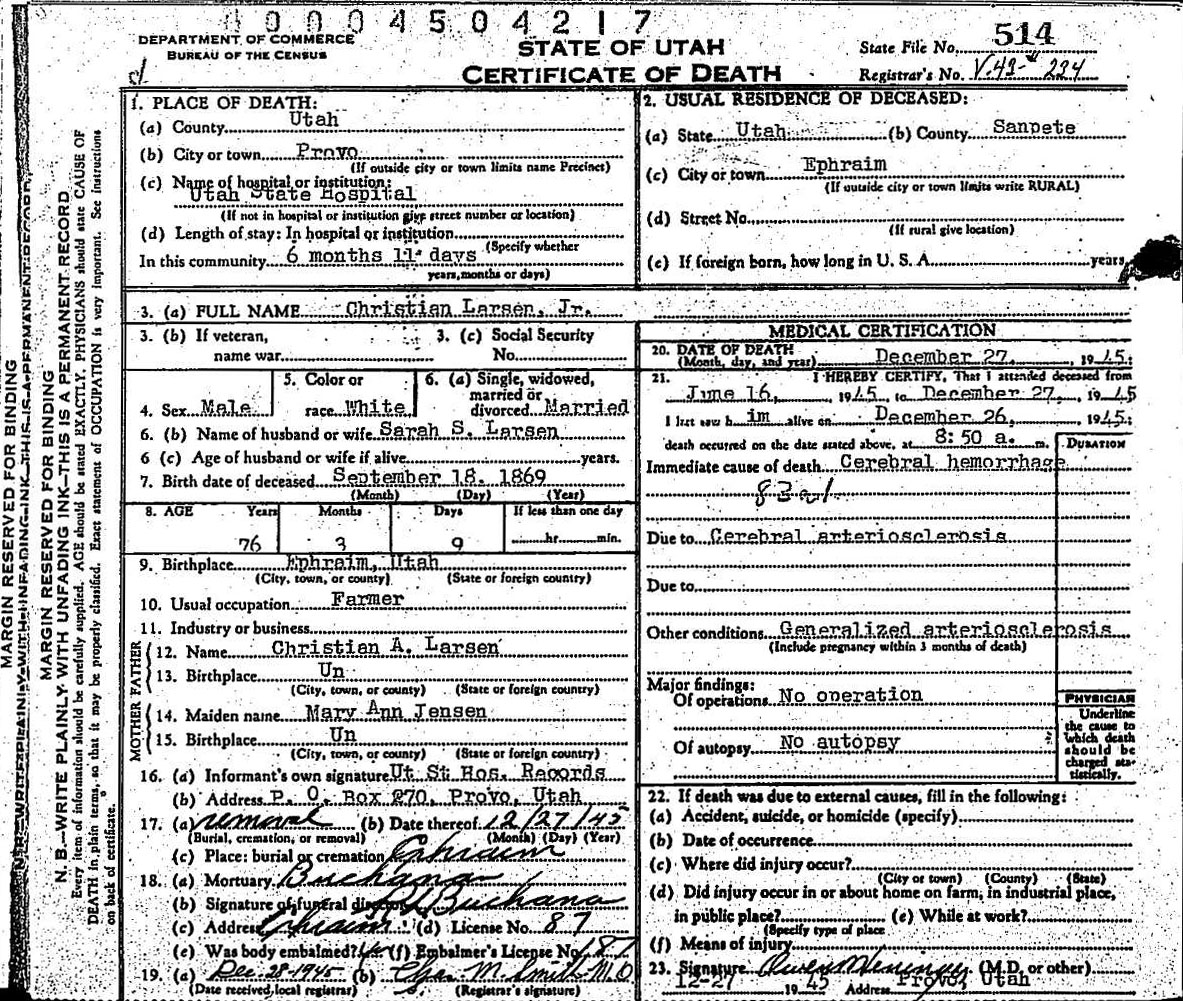 00004504217
DEPARTMENT OF COMMERCE
BUREAU OF THE CENSUS
STATE OF UTAH
CERTIFICATE OF DEATH
State File No. 514
Registrar's No. V.43- 224
MARGIN RESERVED FOR BINDING
MARGIN RESERVED FOR BINDING
N. B.—WRITE PLAINLY WITH UNFADING INK—THIS IS A PERMANENT RECORD
Every item of information should be carefully supplied. AGE should be stated EXACTLY. PHYSICIANS should state CAUSE OF
DEATH in plain terms, so that it may be properly classified. Exact statement of OCCUPATION is very important. See instructions
on back of certificate.
1. PLACE OF DEATH:
(a) County Utah
(b) City or town Provo
(If outside city or town limits name Precinct)
(c) Name of hospital or institution:
Utah State Hospital
(If not in hospital or institution give street number or location)
(d) Length of stay: In hospital or institution
(Specify whether
In this community 6 months 11 days
years, months or days)
2. USUAL RESIDENCE OF DECEASED:
(a) State Utah (b) County Sanpete
(c) City or town Ephraim
(If outside city or town limits write RURAL)
(d) Street No.
(If rural give location)
(e) If foreign born, how long in U. S. A. years
3. (a) FULL NAME Christian Larsen, Jr.
3. (b) If veteran, name war
3. (c) Social Security No.
4. Sex Male
5. Color or race White
6. (a) Single, widowed, married or divorced Married
6. (b) Name of husband or wife Sarah S. Larsen
6 (c) Age of husband or wife if alive years.
7. Birth date of deceased September 18, 1869
(Month) (Day) (Year)
8. AGE Years Months Days If less than one day
76 3 9 hr. min.
9. Birthplace Ephraim, Utah
(City, town, or county) (State or foreign country)
10. Usual occupation Farmer
11. Industry or business
FATHER
12. Name Christian A. Larsen
13. Birthplace Un
(City, town, or county) (State or foreign country)
MOTHER
14. Maiden name Mary Ann Jensen
15. Birthplace Un
(City, town, or county) (State or foreign country)
16. (a) Informant's own signature Ut St Hos. Records
(b) Address P. O. Box 270, Provo, Utah
17. (a) removal (b) Date thereof 12/27/45
(Burial, cremation, or removal) (Month) (Day) (Year)
(c) Place: burial or cremation Ephraim
18. (a) Mortuary Buchanan
(b) Signature of funeral director Buchanan
(c) Address Ephraim (d) License No. 87
(e) Was body embalmed? (f) Embalmer's License No. 187
19. (a) Dec. 28-1945 (b) Chas. M. Smith M.D
(Date received local registrar) (Registrar's signature)
MEDICAL CERTIFICATION
20. DATE OF DEATH
(Month, day, and year) December 27, 1945
21. I HEREBY CERTIFY, That I attended deceased from
June 16, 1945 to December 27, 1945
I last saw him alive on December 26, 1945
death occurred on the date stated above, at 8:50 a. m.
DURATION
Immediate cause of death Cerebral hemorrhage
83a1
Due to Cerebral arteriosclerosis
Due to
Other conditions Generalized arteriosclerosis
(Include pregnancy within 3 months of death)
Major findings:
Of operations No operation
Of autopsy No autopsy
PHYSICIAN
Underline
the cause to
which death
should be
charged sta-
tistically.
22. If death was due to external causes, fill in the following:
(a) Accident, suicide, or homicide (specify)
(b) Date of occurrence
(c) Where did injury occur?
(City or town) (County) (State)
(d) Did injury occur in or about home on farm, in industrial place,
in public place? (e) While at work?
(Specify type of place
(f) Means of injury
23. Signature Owen (M.D. or other)
12-27 1945 Address Provo, Utah